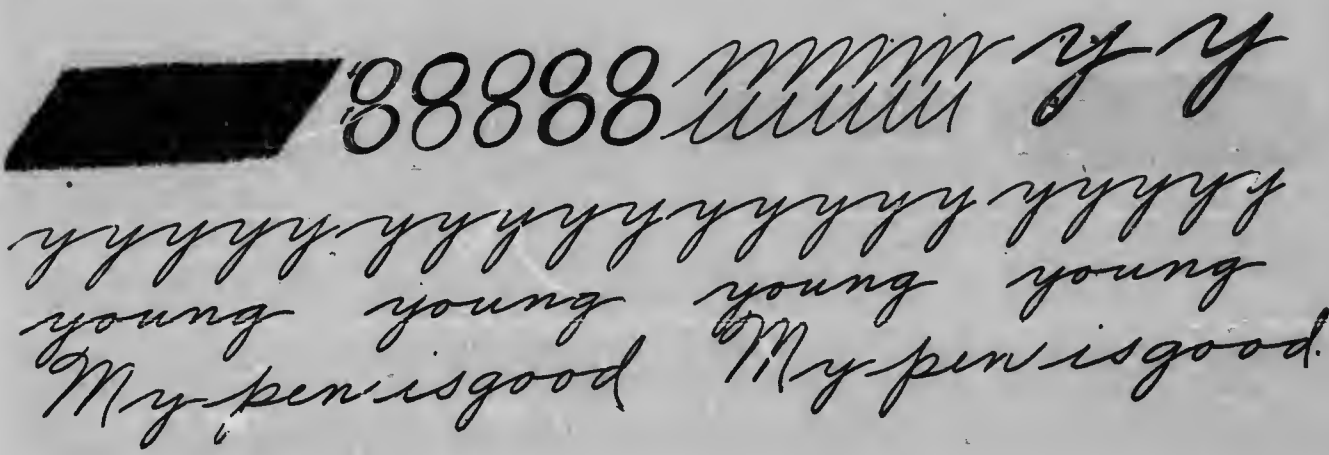 y y
yyyyy yyyyy yyyyy yyyyy
young young young young
My pen is good My pen is good.